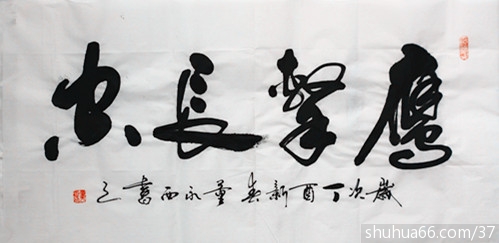 鷹擊長空
歲次丁酉新春董永西書之
shuhua66.com/37